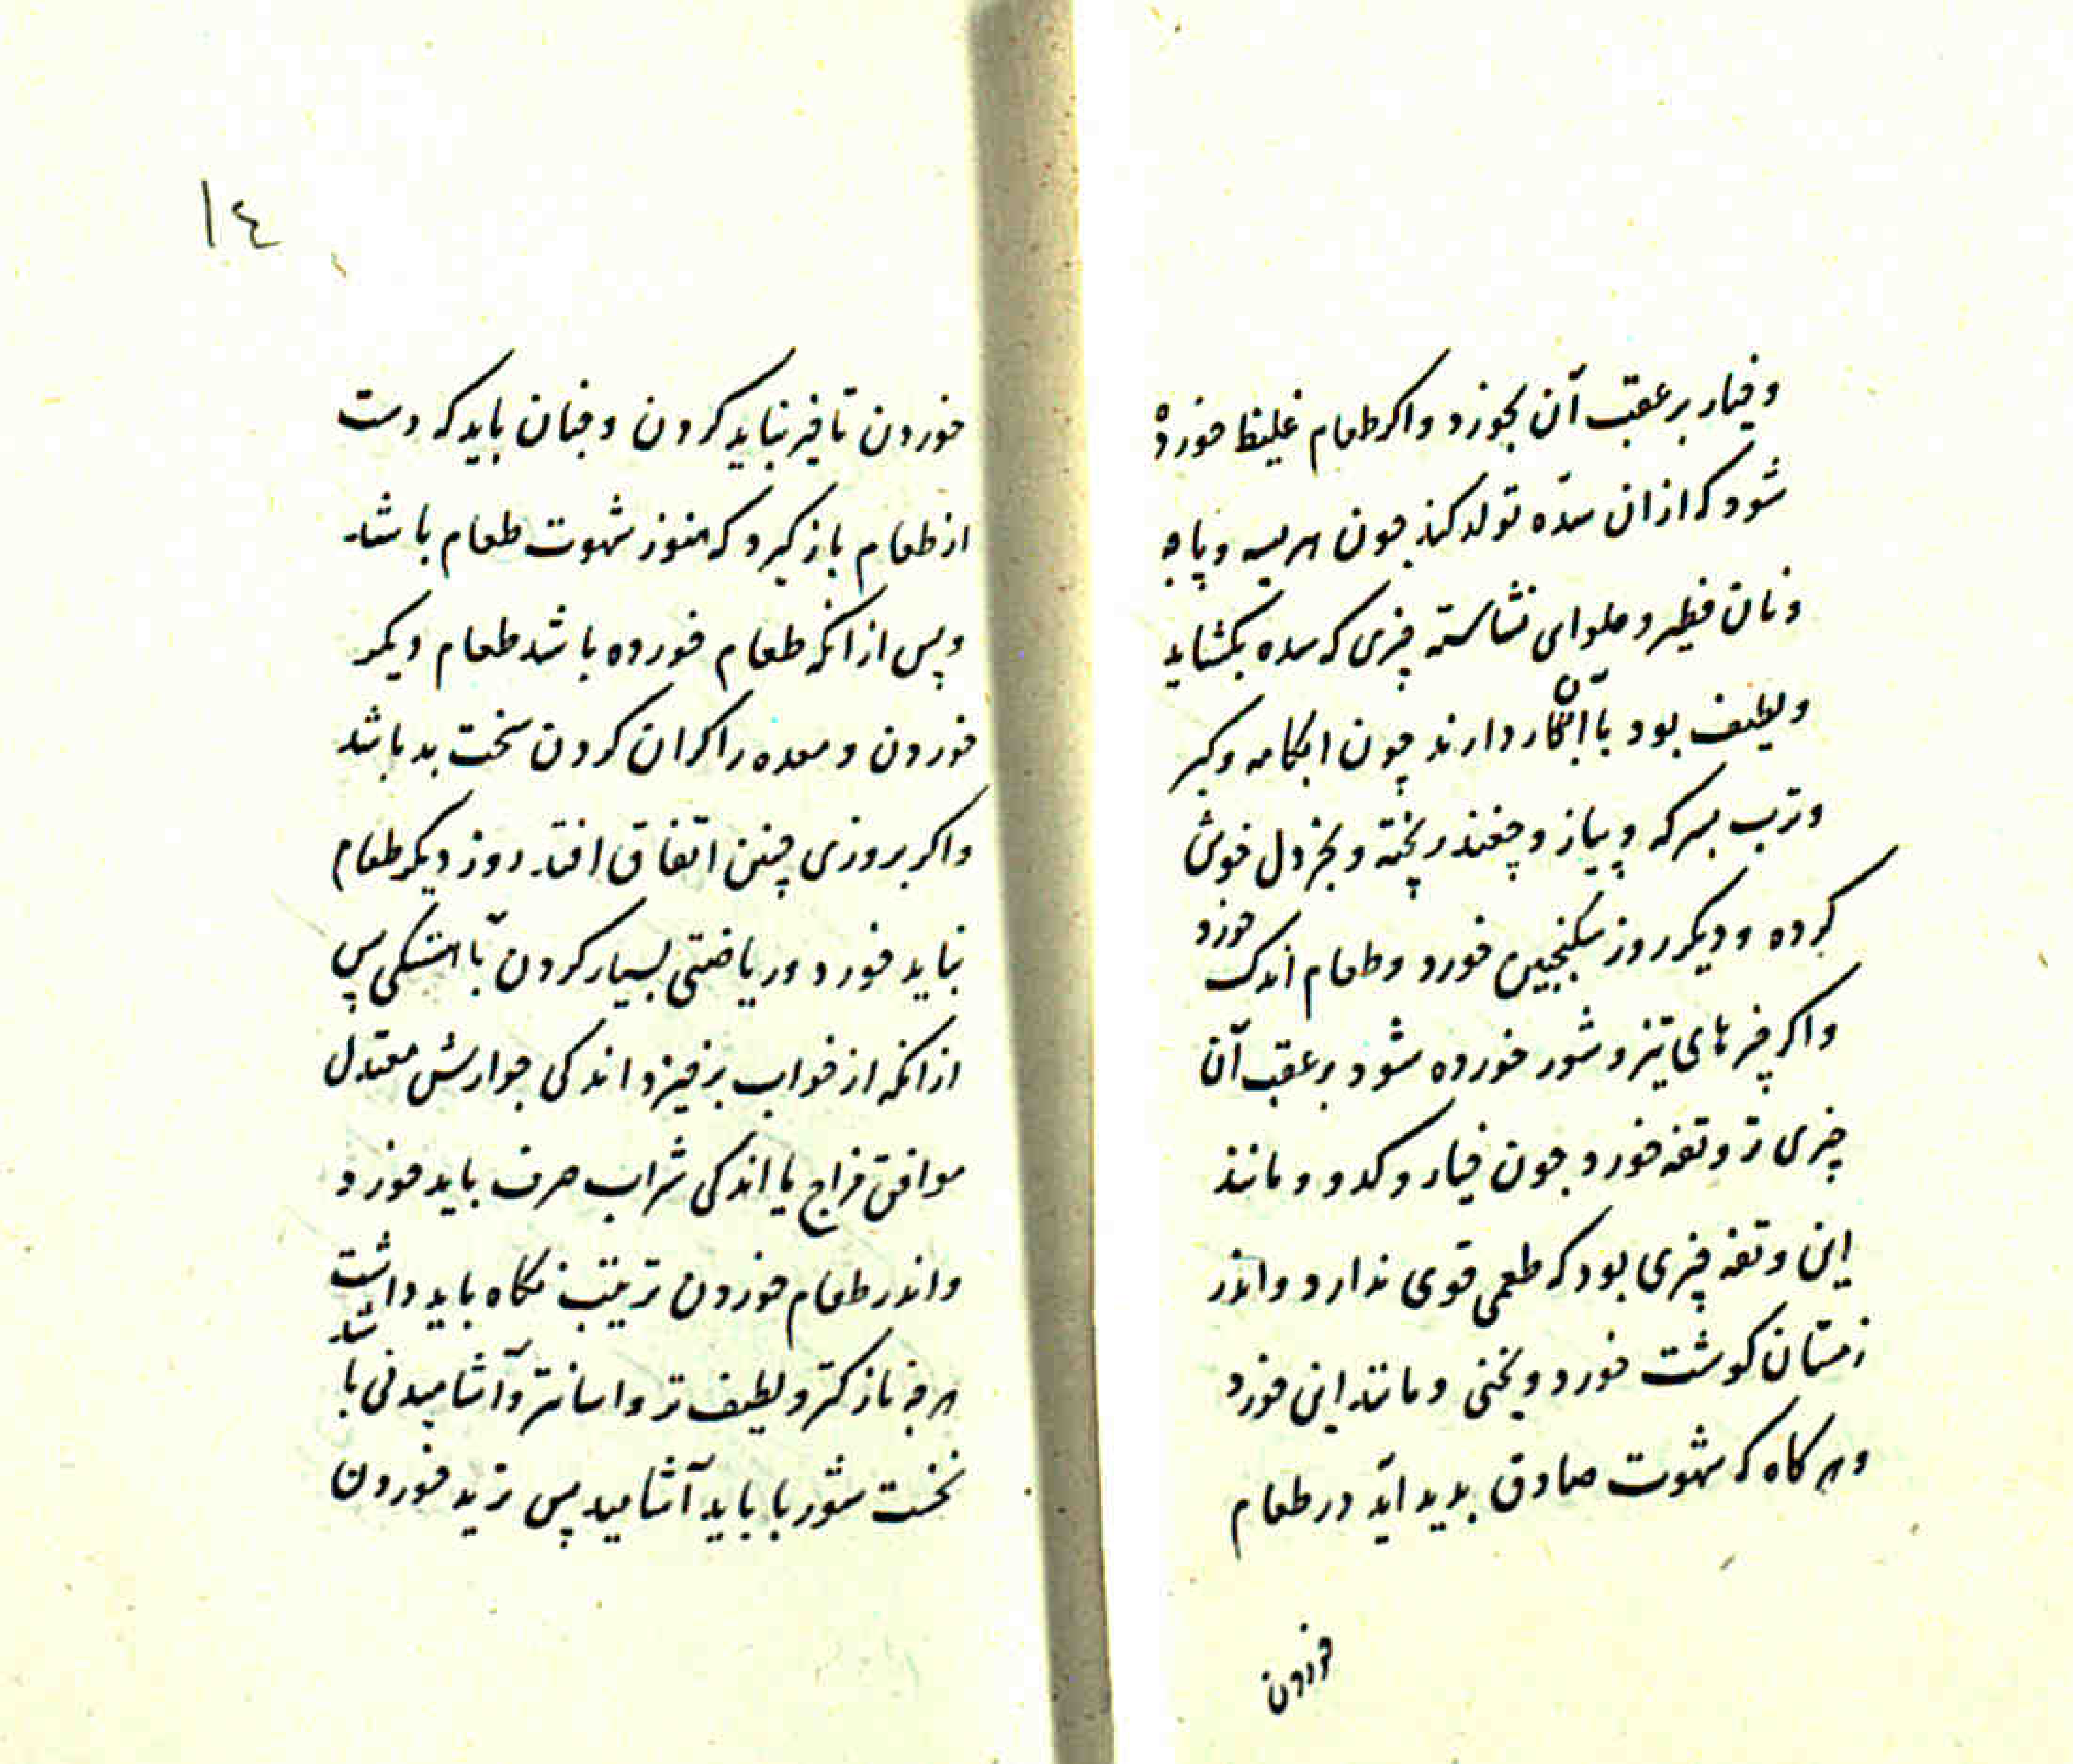 وخیار بر عقب آن بخورد واکر طعام غلیظ خورده
شود که ازان سدّه تولد کند جون هریسه وپاجه
ونان فطیر وحلوای نشاسته چیزی که سده بکشاید
ولطیف بود باآن بکار دارند چون ابکامه وکبر
وترب بسرکه وپیاز وچغندر پخته وبخردل خوش
کرده ودیکر روز سکنجبین خورد وطعام اندک خورد
واکر چیزهای تیز وشور خورده شود بر عقب آن
چیزی تر وتفه خورد جون خیار وکدو ومانند
این وتفه چیزی بود که طعمی قوی ندارد واندر
زمستان کوشت خورد ویخنی ومانند این خورد
وهرکاه که شهوت صادق بدید آید در طعام
خوردن
١٤
خوردن تاخیر نباید کردن وجنان باید که دست
از طعام باز کیرد که هنوز شهوت طعام باشد
وپس ازانکه طعام خورده باشد طعام دیکر
خوردن ومعده را کران کردن سخت بد باشد
واکر بروزی چنین اتفاق افتد روز دیکر طعام
نباید خورد وریاضتی بسیار کردن بآهستکی پس
ازانکه از خواب برخیزد اندکی جوارش معتدل
موافق مزاج یا اندکی شراب صرف باید خورد
واندر طعام خوردن ترتیب نکاه باید داشت
هرچه نازکتر ولطیف تر واسانتر وآشامیدنی باشد
نخست شوربا باید آشامید پس ترید خوردن